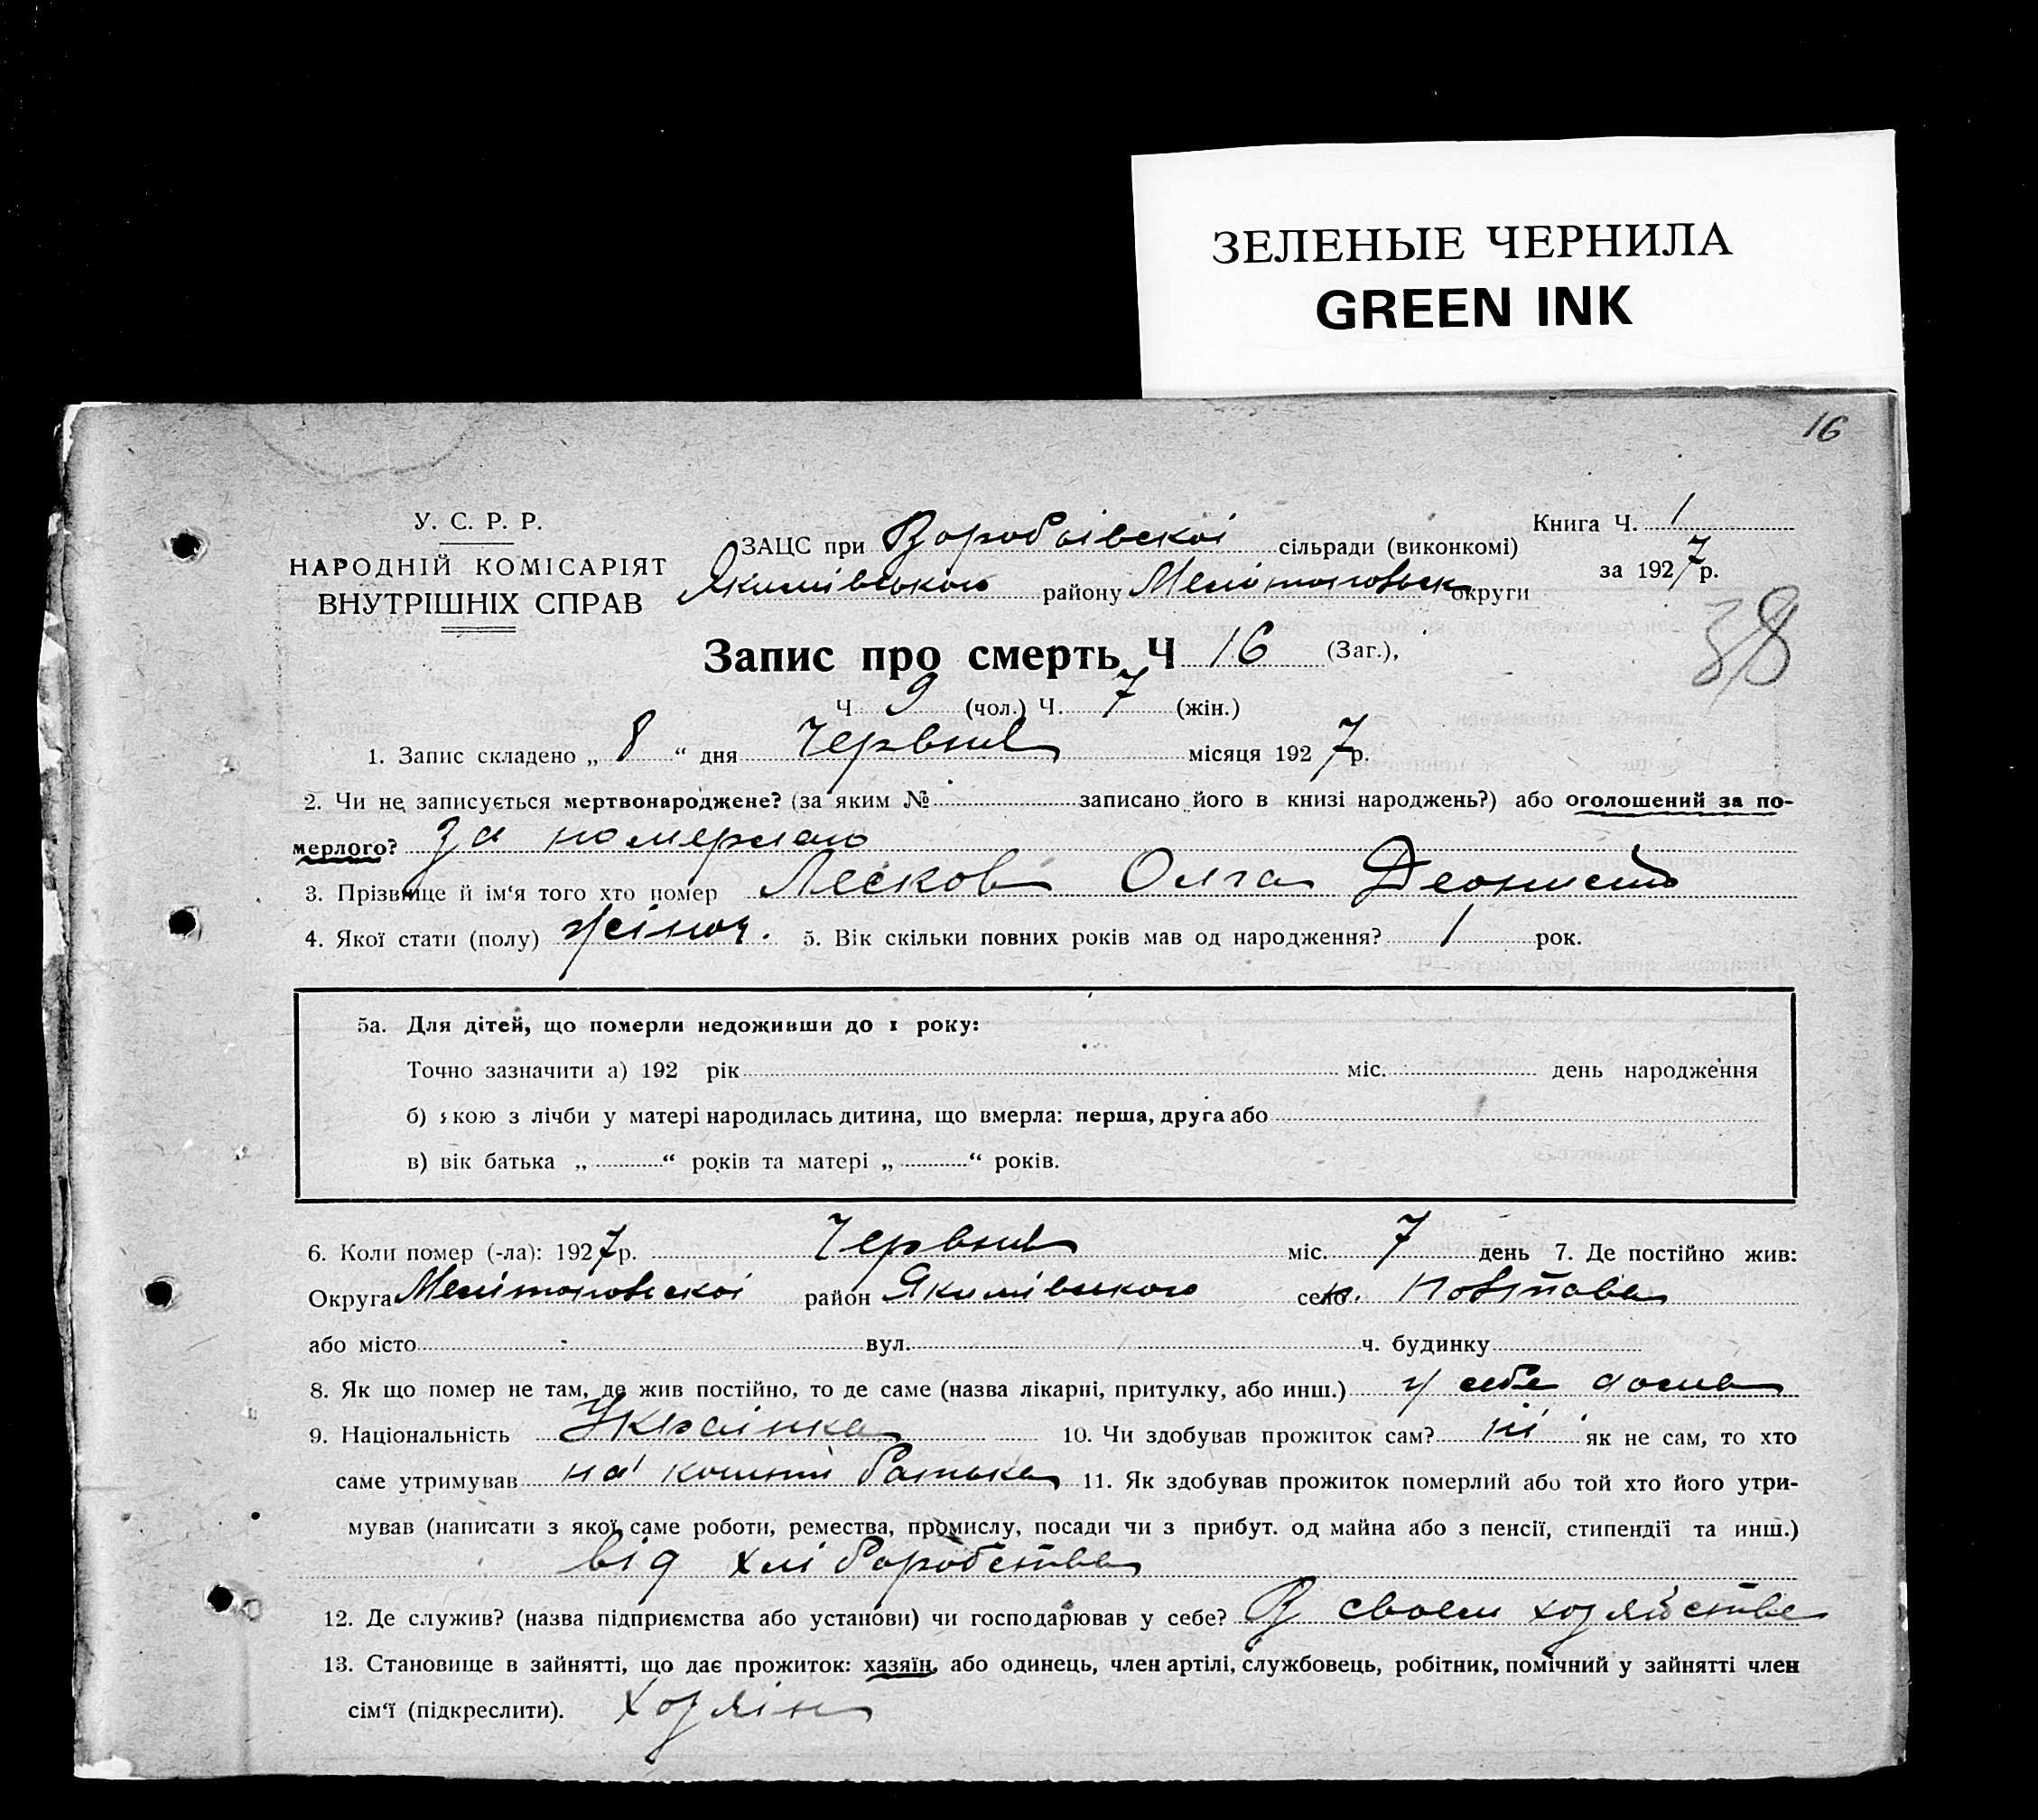 ЗЕЛЕНЫЕ ЧЕРНИЛА
GREEN INK
16
У. С. Р. Р.
НАРОДНІЙ КОМІСАРІЯТ
ВНУТРІШНІХ СПРАВ
ЗАЦС при Воробьівскоі сільради (виконкомі)
Якимівського району Мелітопольск округи
Книга Ч. 1
за 1927 р.
38
Запис про смерть Ч 16 (Заг.),
Ч 9 (чол.) Ч. 7 (жін.)
1. Запис складено „ 8 “ дня Червня місяця 1927 р.
2. Чи не записується мертвонароджене? (за яким № записано його в книзі народжень?) або оголошений за по-
мерлого? За померлою
3. Прізвище й ім‘я того хто помер Лєскова Олга
4. Якої стати (полу) жіноч. 5. Вік скільки повних років мав од народження? 1 рок.
5а. Для дітей, що померли недоживши до 1 року:
Точно зазначити а) 192 рік міс. день народження
б) якою з лічби у матері народилась дитина, що вмерла: перша, друга або
в) вік батька „ “ років та матері „ “ років.
6. Коли помер (-ла): 1927 р. Червня міс. 7 день 7. Де постійно жив:
Округа Мелітопольскоі район Якимівського село
або місто вул. ч. будинку
8. Як що помер не там, де жив постійно, то де саме (назва лікарні, притулку, або инш.) у себе дома
9. Національність Украінка 10. Чи здобував прожиток сам? ні як не сам, то хто
саме утримував на кошти батька 11. Як здобував прожиток померлий або той хто його утри-
мував (написати з якої саме роботи, ремества, промислу, посади чи з прибут. од майна або з пенсії, стипендії та инш.)
від хліборобства
12. Де служив? (назва підприємства або установи) чи господарював у себе? В своем хозяйстве
13. Становище в зайнятті, що дає прожиток: хазяїн, або одинець, член артілі, службовець, робітник, помічний у зайнятті член
сім‘ї (підкреслити). Хозяін